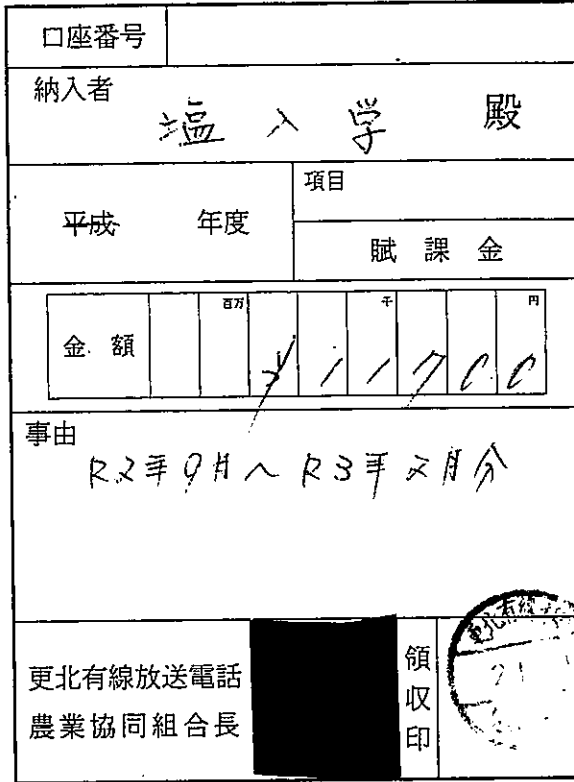 口座番号
納入者
塩入学 殿
平成 年度
項目
賦課金
金額 百万 千 円
¥11700
事由
R2年9月～R3年2月分
更北有線放送電話
農業協同組合長
領収印
更北有線